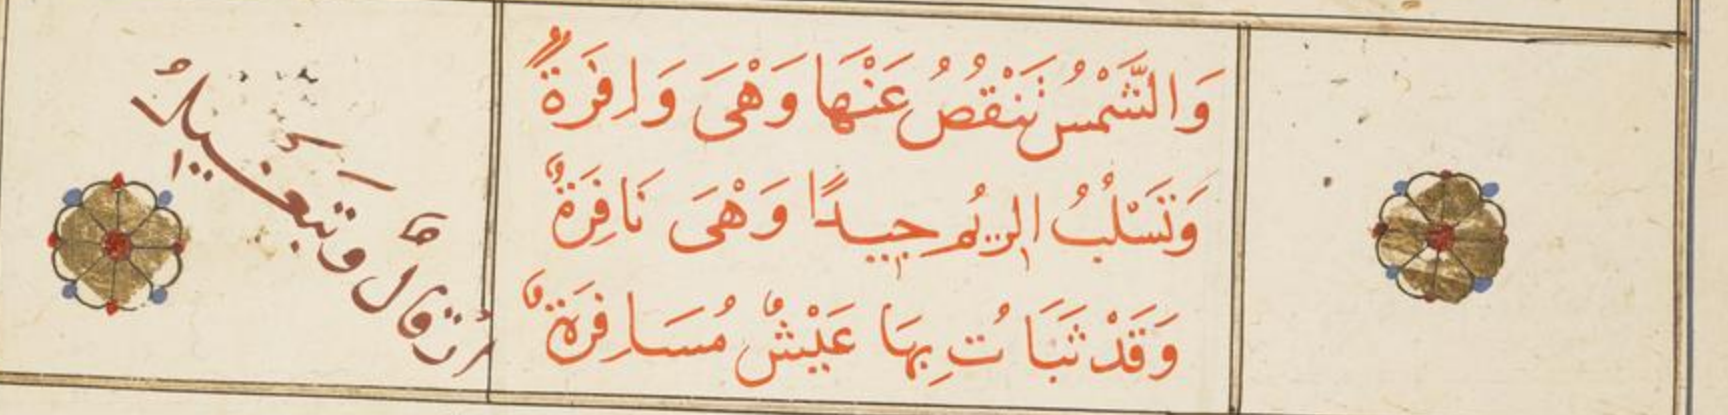 وَالشَّمْسُ تَنْقُصُ عَنْهَا وَهْىَ وَافِرَةٌ
وَتَسْلُبُ الرِيُم جِيدًا وَهْىَ نَافِرَةٌ
وَقَدْ ثَبَاتُ بِهَا عَيْشٌ مُسَافِرَةٌ